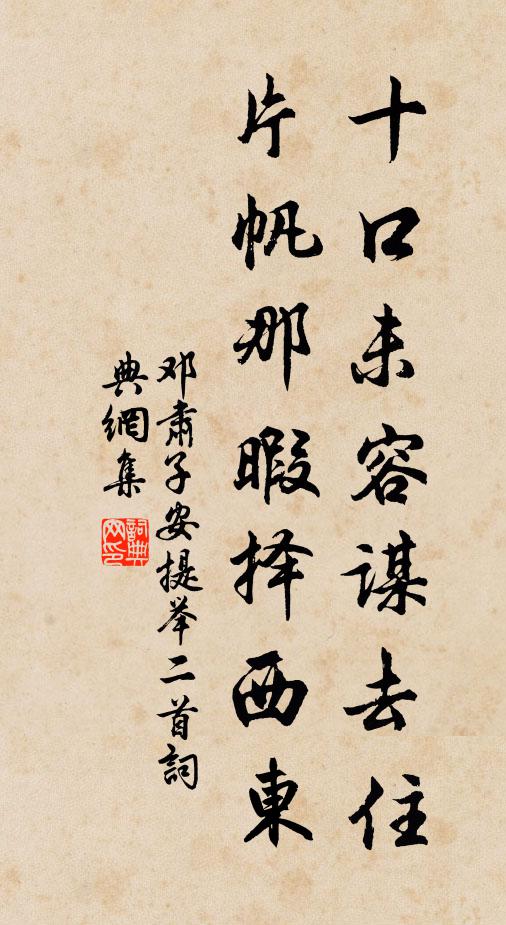 十口未容谋去住
片帆那暇择西東
邓肃子安提举二首詞
典網集
詞典网印